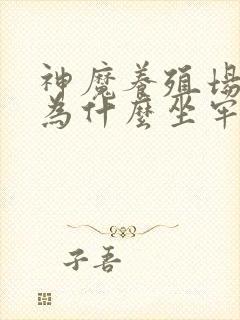 神魔養殖場
為什麼坐牢
子吾